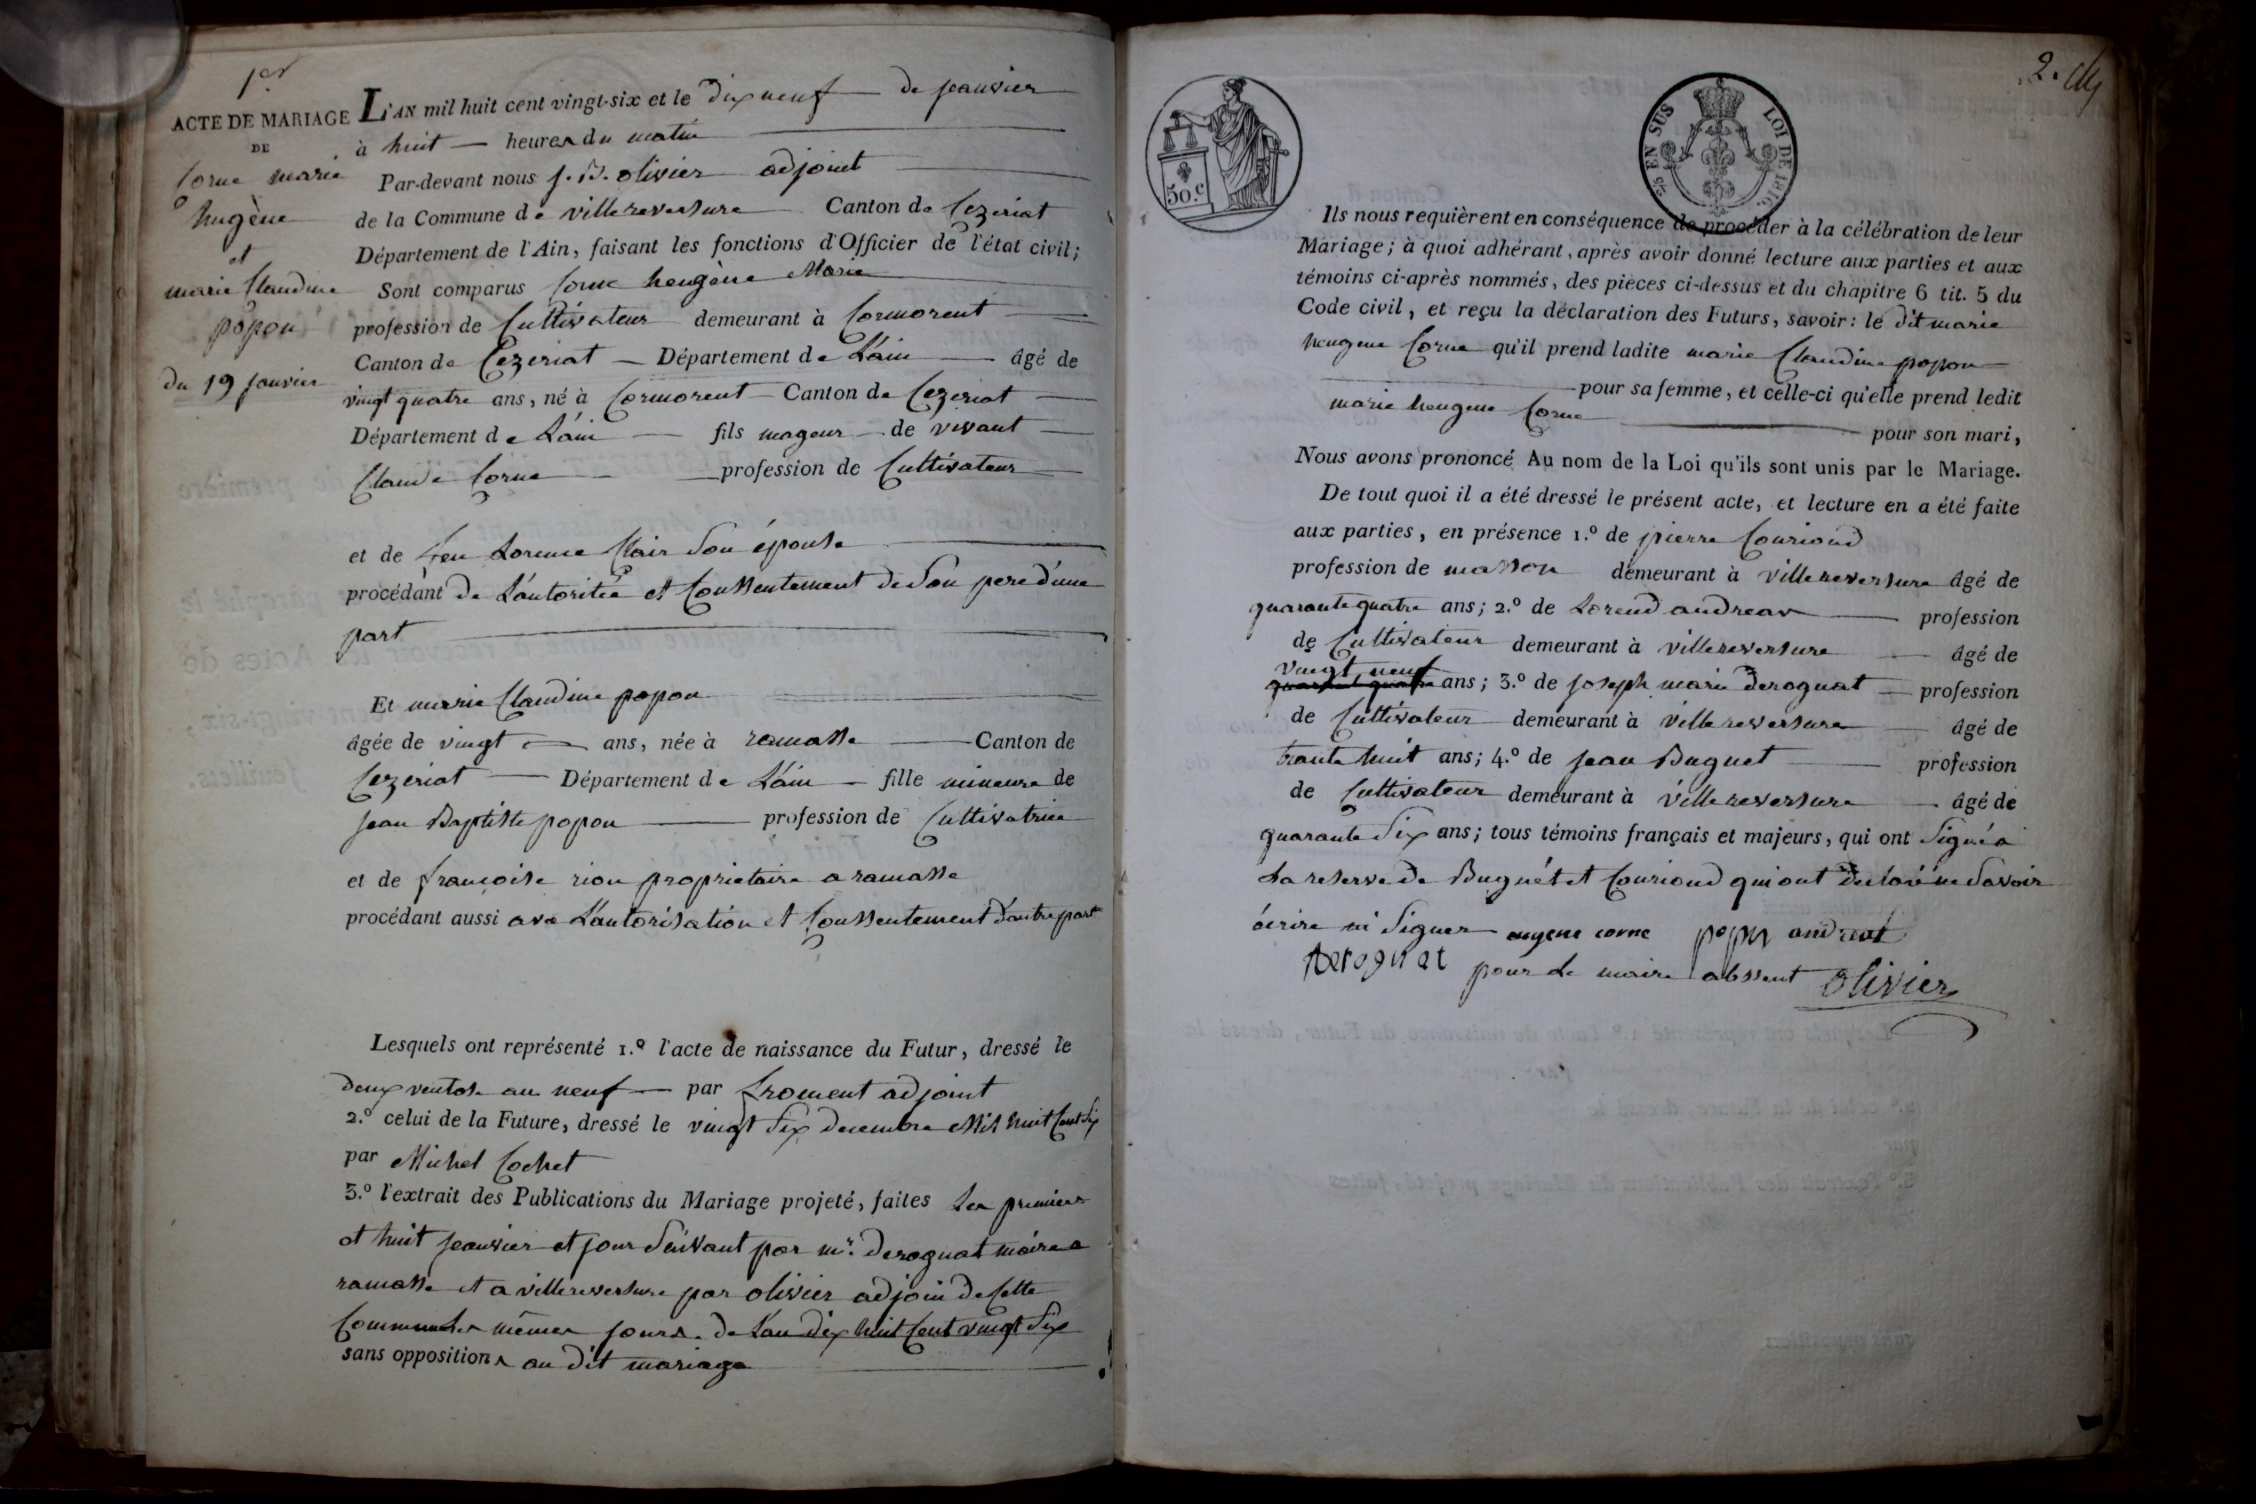 1er
ACTE DE MARIAGE
DE
Corne marie
hugène
et
marie Claudine
popon
du 19 janvier
L'AN mil huit cent vingt-six et le dix neuf de jeanvier
à huit heures du matin
Par-devant nous J. B. olivier adjoint
de la Commune de villereversure Canton de Cezeriat
Département de l'Ain, faisant les fonctions d'Officier de l'état civil;
Sont comparus Corne heugène Marie
profession de Cultivateur demeurant à Cormorent
Canton de Cezeriat Département de L'ain âgé de
vingt quatre ans, né à Cormorent Canton de Cezeriat
Département de L'ain fils mageur de vivant
Claude Corne profession de Cultivateur
et de feu Lorence Clair son épouse
procédant de L'autoritée et Conssentement de Son pere d'une
part
Et marie Claudine popon
âgée de vingt ans, née à ramasse Canton de
Cezeriat Département de L'ain fille mineure de
jean Baptiste popon profession de Cultivatrice
et de françoise rion proprietaire a ramasse
procédant aussi ave L'autorisation et Conssentement d'autre part
Lesquels ont représenté 1.º l'acte de naissance du Futur, dressé le
deux ventose an neuf par froment adjoint
2.º celui de la Future, dressé le vingt Six decembre Mil huit Cent Six
par Michel Cochet
3.º l'extrait des Publications du Mariage projeté, faites Les premier
et huit jeanvier et jour Suivant par mr. deroguat maire a
ramasse et a villereversure par olivier adjoin de Cette
Commune Les mêmes jours de L'an dix huit Cent vingt Six
sans oppositions au dit mariage
2.
50.c
EN SUS LOI DE 1816
Ils nous requièrent en conséquence de procéder à la célébration de leur
Mariage; à quoi adhérant, après avoir donné lecture aux parties et aux
témoins ci-après nommés, des pièces ci-dessus et du chapitre 6 tit. 5 du
Code civil, et reçu la déclaration des Futurs, savoir: le dit marie
heugene Corne qu'il prend ladite marie Claudine popon
pour sa femme, et celle-ci qu'elle prend ledit
marie heugene Corne
pour son mari,
Nous avons prononcé Au nom de la Loi qu'ils sont unis par le Mariage.
De tout quoi il a été dressé le présent acte, et lecture en a été faite
aux parties, en présence 1.º de pierre Courioud
profession de masson demeurant à villereversure âgé de
quarante quatre ans; 2.º de Lorend andreas profession
de Cultivateur demeurant à villereversure âgé de
vingt neuf
quarante quatre ans; 3.º de joseph marie deroguat profession
de Cultivateur demeurant à villereversure âgé de
trante huit ans; 4.º de jean Buguet profession
de Cultivateur demeurant à villereversure âgé de
quarante Six ans; tous témoins français et majeurs, qui ont Signé a
La reserve de Buguét et Courioud qui ont declaré ne Savoir
écrire ni Signer eugene corne popon andreas
deroguat pour Le maire abssent Olivier